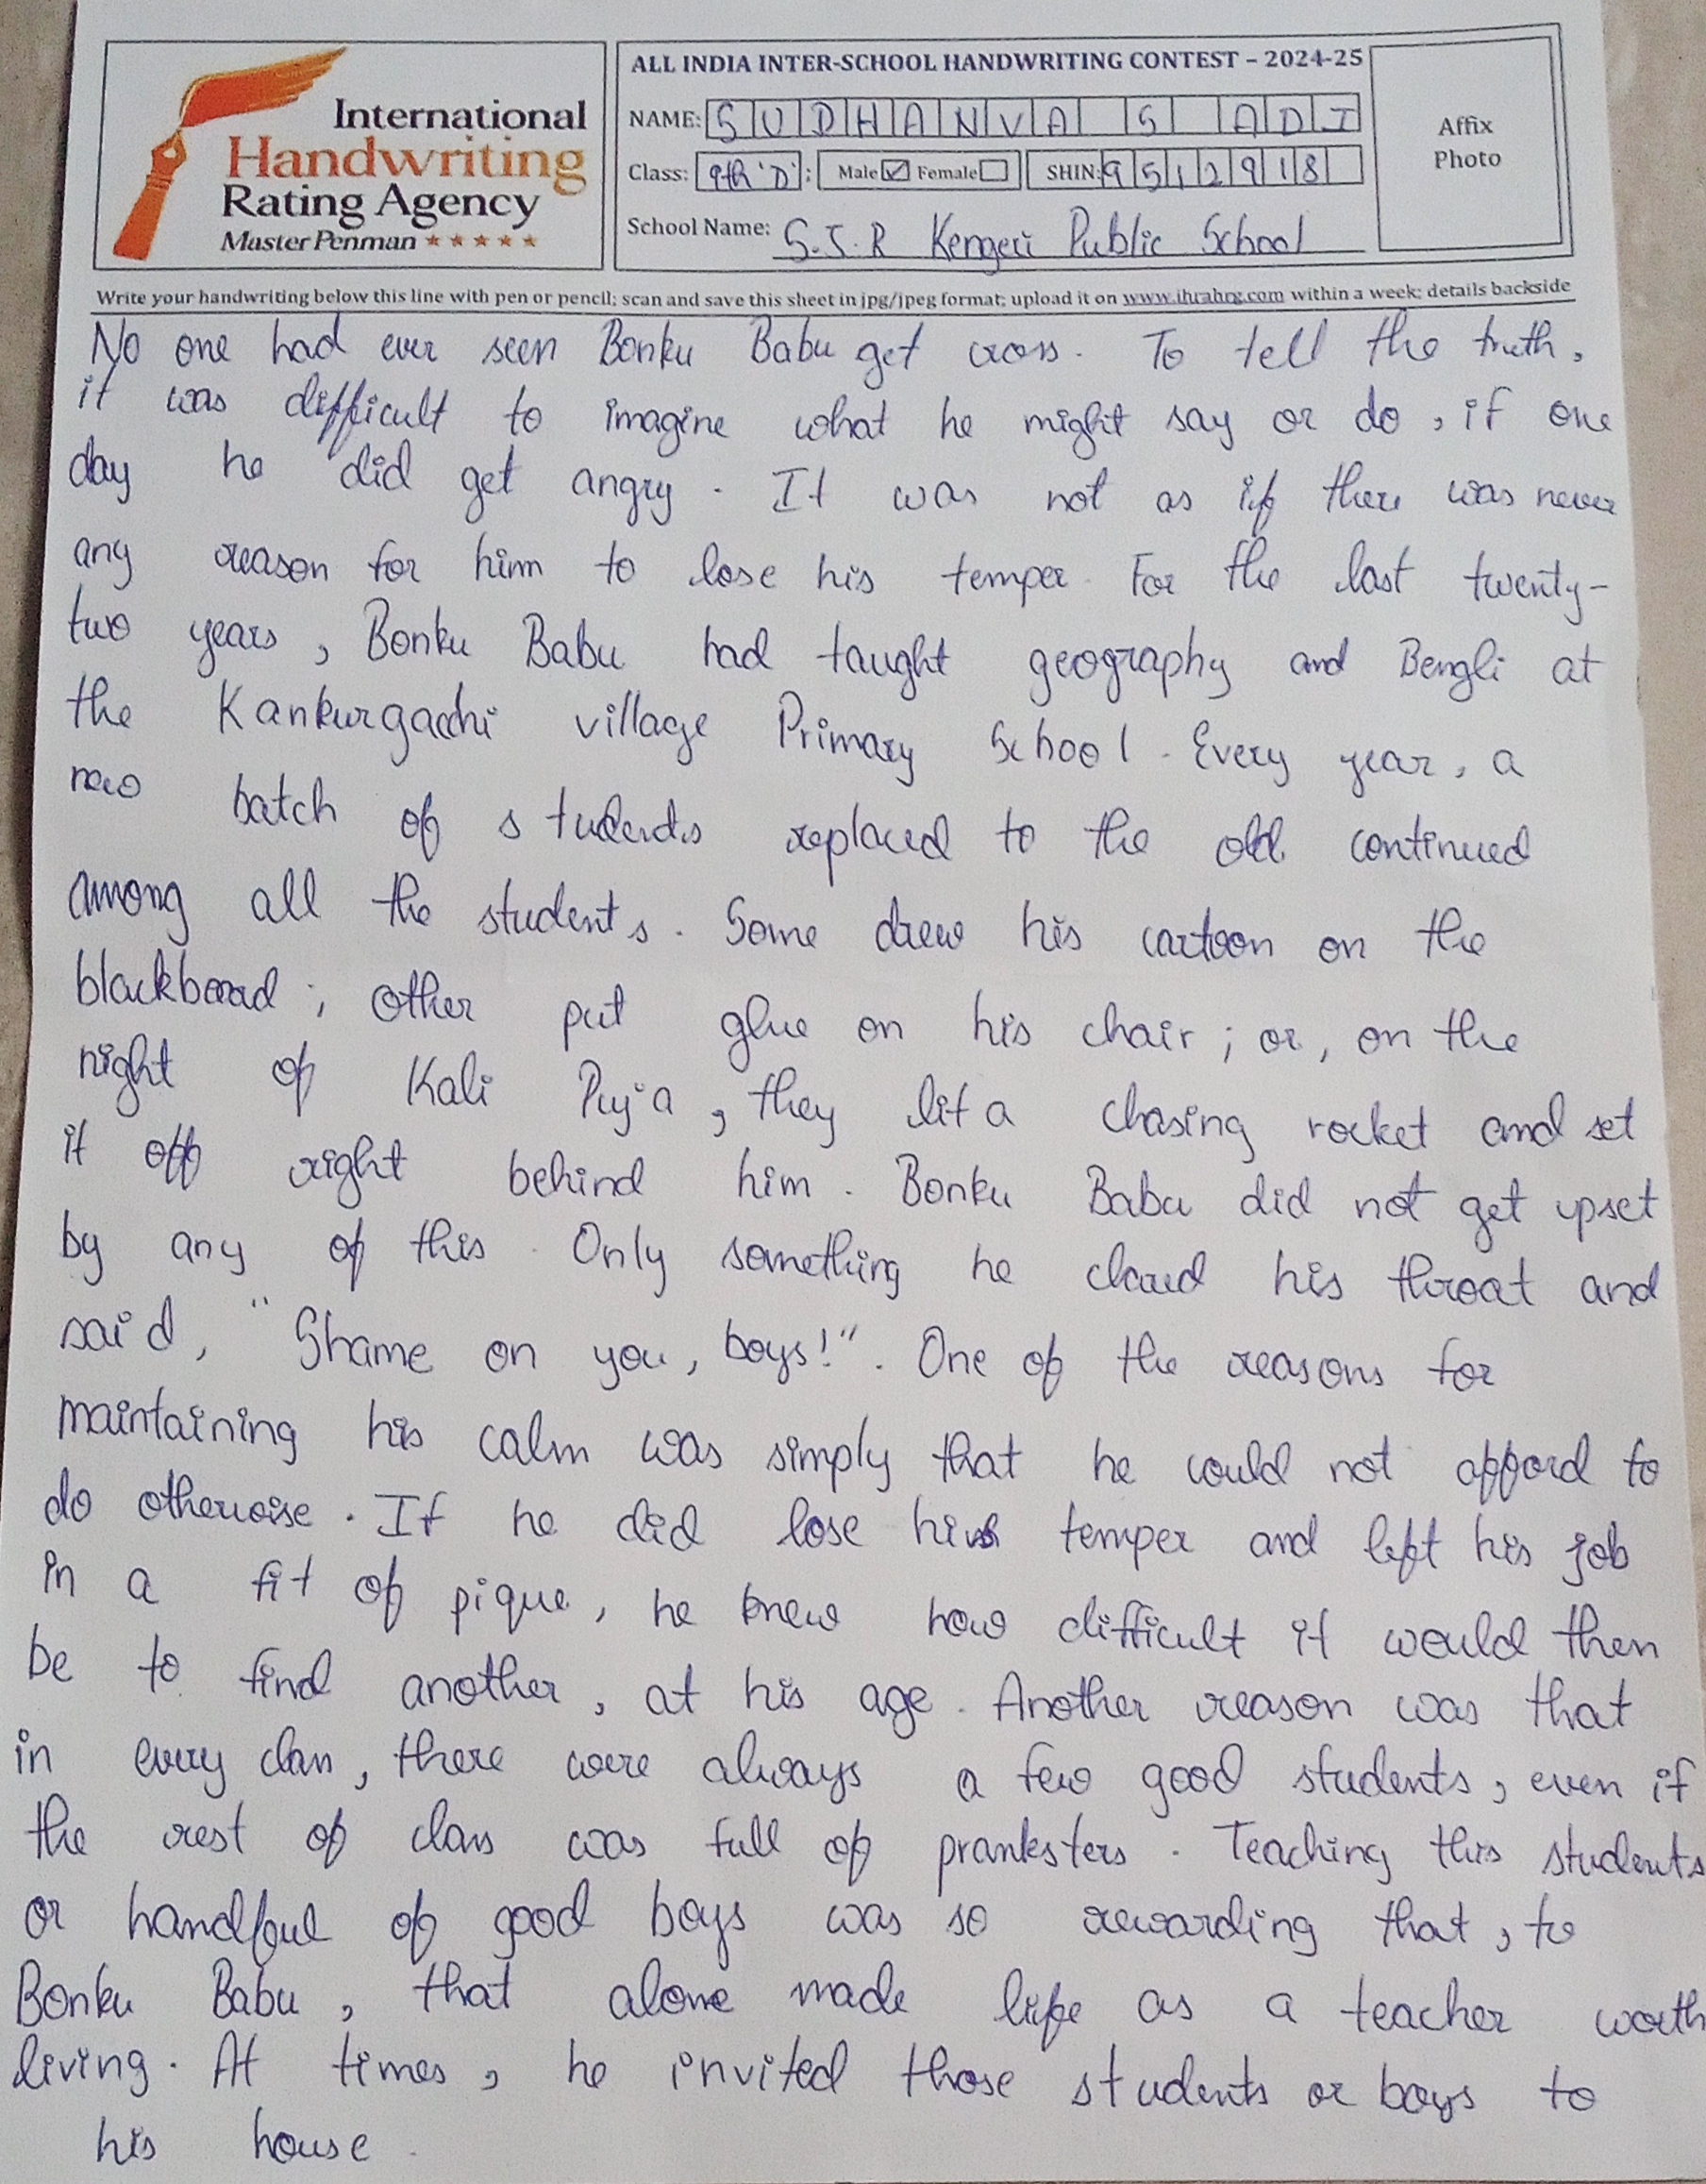 International
Handwriting
Rating Agency
Master Penman ★★★★★
ALL INDIA INTER-SCHOOL HANDWRITING CONTEST – 2024-25
NAME: SUDHANVA S ADI
Class: 9th 'D' : Male ☑ Female ☐ SHIN: 9512918
School Name: S.J.R Kengeri Public School
Affix
Photo
Write your handwriting below this line with pen or pencil; scan and save this sheet in jpg/jpeg format; upload it on www.ihrahrg.com within a week; details backside
No one had ever seen Bonku Babu get cross. To tell the truth,
it was difficult to imagine what he might say or do, if one
day he did get angry. It was not as if there was never
any reason for him to lose his temper. For the last twenty-
two years, Bonku Babu had taught geography and Bengli at
the Kankurgacchi village Primary School. Every year, a
new batch of students replaced to the old continued
among all the students. Some drew his cartoon on the
blackboard; other put glue on his chair; or, on the
night of Kali Puja, they lit a chasing rocket and set
it off right behind him. Bonku Babu did not get upset
by any of this. Only something he cleard his throat and
said, "Shame on you, boys!". One of the reasons for
maintaining his calm was simply that he could not afford to
do otherwise. If he did lose his temper and left his job
in a fit of pique, he knew how difficult it would then
be to find another, at his age. Another reason was that
in every class, there were always a few good students, even if
the rest of class was full of pranksters. Teaching this students
or handful of good boys was so rewarding that, to
Bonku Babu, that alone made life as a teacher worth
living. At times, he invited those students or boys to
his house.